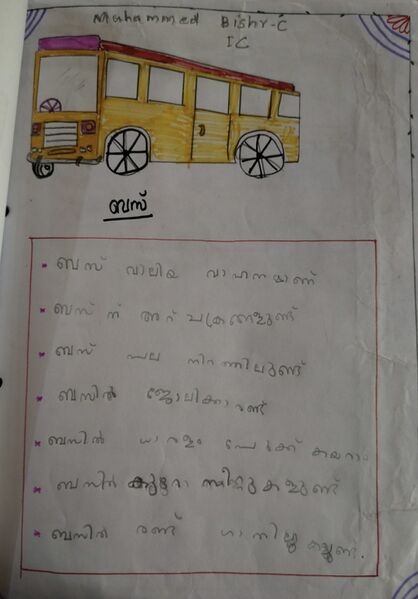 Mohammed Bishr-C
IC
ബസ്
ബസ് വാലിയ വാഹനയാണ്
ബസ് ന് അറ് ചക്രങ്ങളുണ്ട്
ബസ് പല നിറത്തിലുണ്ട്
ബസിൽ ജോലിക്കാരുണ്ട്
ബസിൽ ധാരളം പേർക്ക് കയറാം
ബസിൽ സീറ്റുകളുണ്ട്
ബസിൽ രണ്ട്